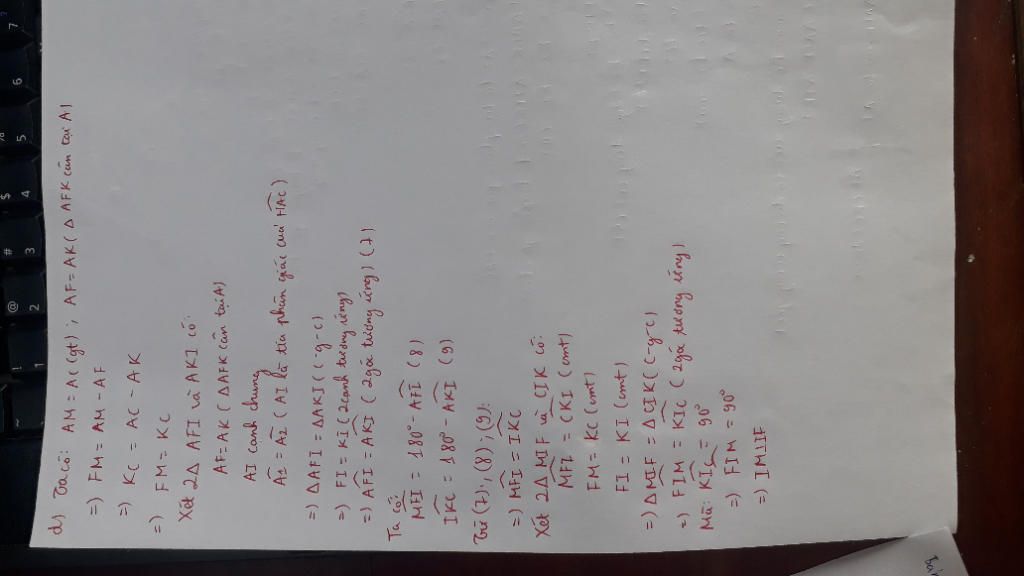 d) Ta có: AM = AC (gt); AF = AK (Δ AFK cân tại A)
=) FM = AM - AF
=) KC = AC - AK
=) FM = KC
Xét 2Δ AFI và AKI có:
AF = AK (Δ AFK cân tại A)
AI cạnh chung
Â1 = Â2 (AI là tia phân giác của HAC)
=) ΔAFI = ΔAKI (c-g-c)
=) FI = KI (2 cạnh tương ứng)
=) AFI = AKI (2 góc tương ứng) (7)
Ta có:
MFI = 180° - AFI (8)
IKC = 180° - AKI (9)
Từ (7); (8); (9):
=) MFI = IKC
Xét 2Δ MIF và CIK có:
MFI = CKI (cmt)
FM = KC (cmt)
FI = KI (cmt)
=) ΔMIF = ΔCIK (c-g-c)
=) FIM = KIC (2 góc tương ứng)
Mà: KIC = 90°
=) FIM = 90°
=) IM⊥IF
~
! 1
@ 2
# 3
$ 4
% 5
6
7